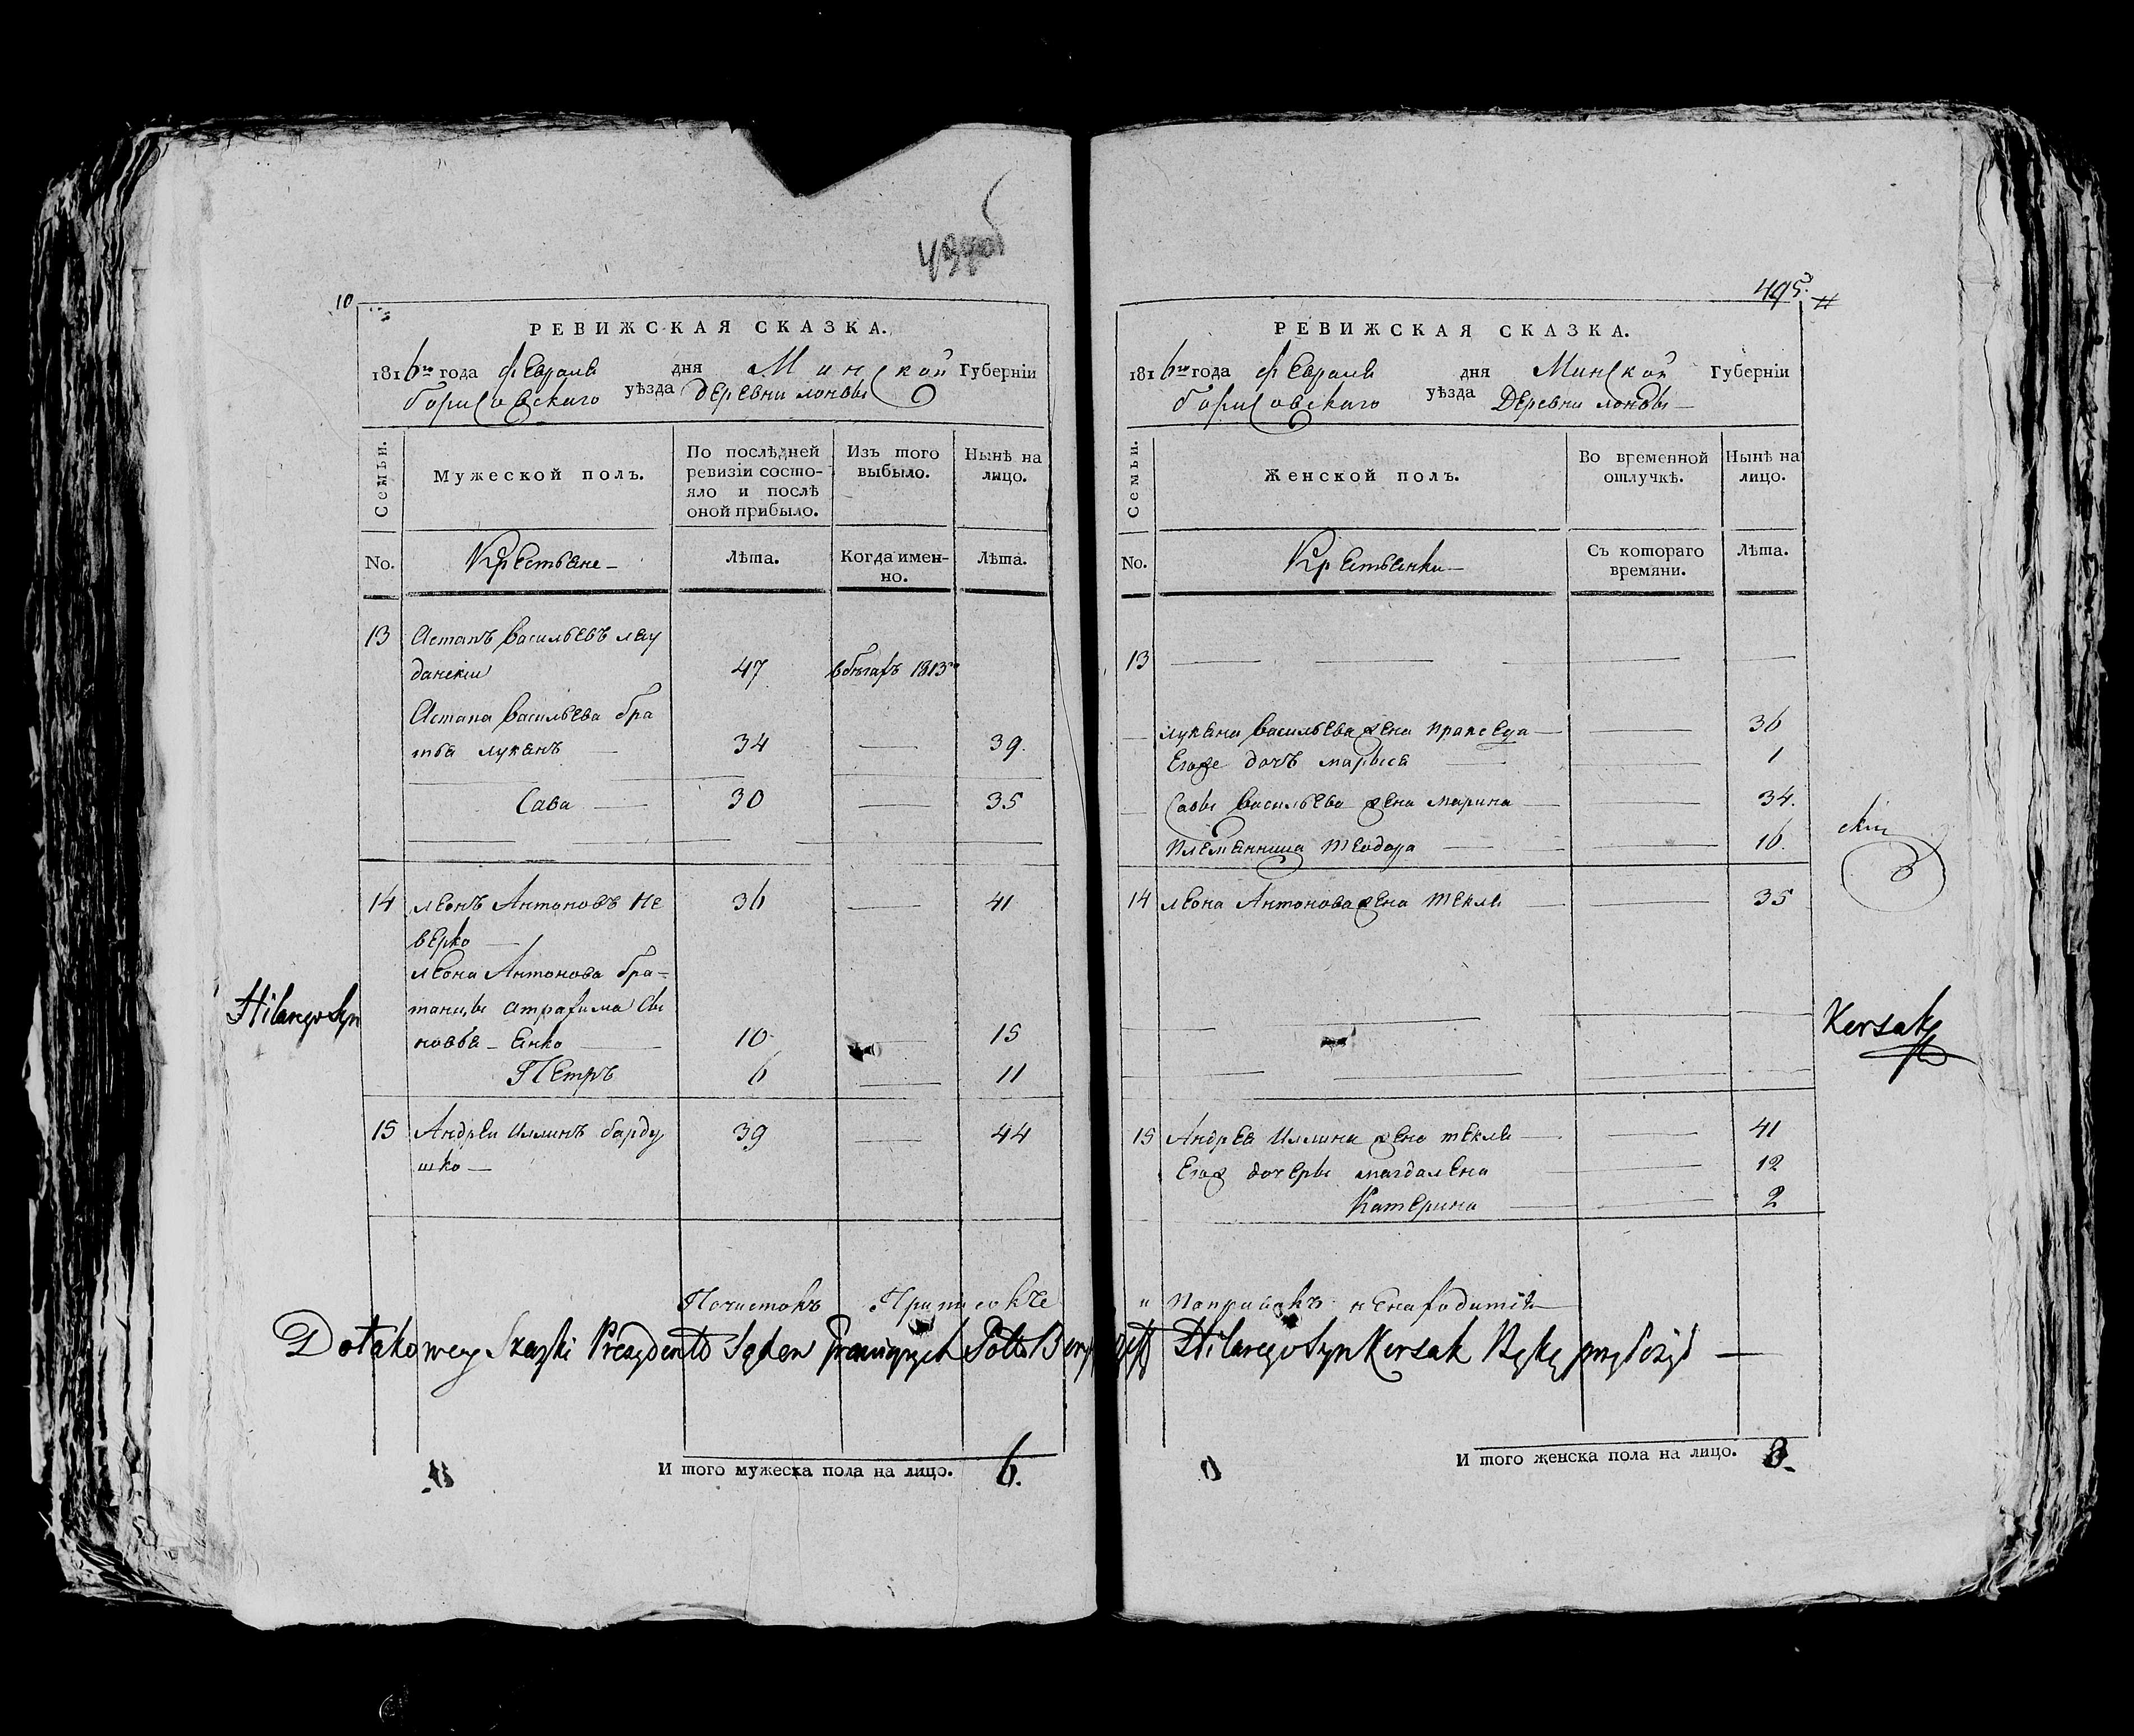 10
495.
РЕВИЖСКАЯ СКАЗКА.
1816го года февраля дня Минской Губернїи
Борисовскаго уѣзда деревни лонвы
Семьи.
Мужеской полъ.
По послѣдней ревизїи состояло и послѣ оной прибыло.
Изъ того выбыло.
Нынѣ на лицо.
No.
Крестьяне
Лѣта.
Когда именно.
Лѣта.
13 Астапъ васильевъ лау
данскiи 47 вбѣгахъ 1813го
Астапа васильева бра
тья лукянъ 34 39.
Сава 30 35
14 леонъ Антоновъ Не 36 41
верко
леона Антонова бра-
танцы атрахима сы
новья Янко 10 15
Петръ 6 11
15 Андреи иллинъ барду 39 44
шко
Почистокъ Приписокъ
И того мужеска пола на лицо. 6.
РЕВИЖСКАЯ СКАЗКА.
1816го года февраля дня Минской Губернїи
Борисовскаго уѣзда Деревни лонвы
Семьи.
Женской полъ.
Во временной отлучкѣ.
Нынѣ на лицо.
No.
Крестьянки
Съ котораго времяни.
Лѣта.
13
лукяна васильева жена пракседа 36
Егоже дочъ марыся 1
Савы васильева жена марина 34.
племянница теодора 16.
14 леона Антонова жена текля 35
15 Андрея иллина жена текля 41
Егож дочеры магдалена 12
Катерина 2
ненаходится
И того женска пола на лицо. 8.
Hilary syn
Korsak
Do takowey Skazki Prezydent Sądow Granicznych Pttu Hilary syn Korsak Rękę przyłożył